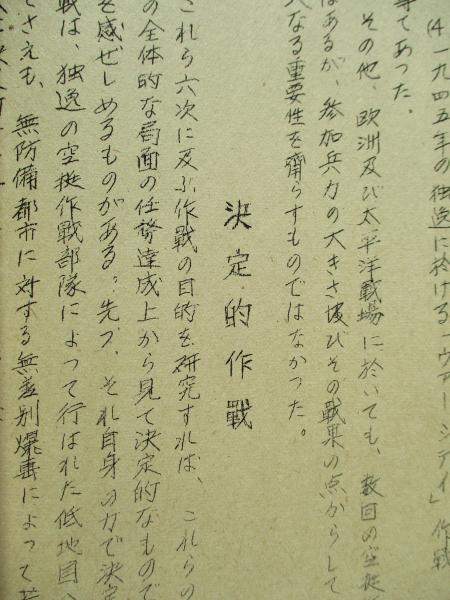 (4 一九四五年の独逸に於ける「ヴァーシティ」作戦
等であった。
その他、欧洲及び太平洋戦場に於いても、数回の空挺
はあるが、参加兵力の大きさ及びその戦果の点からして
大なる重要性を齎らすものではなかった。
決定的作戦
これら六次に及ぶ作戦の目的を研究すれば、これらの
の全体的な局面の任務達成上から見て決定的なもので
を感ぜしめるものがある。先づ、それ自身の力で決定
戦は、独逸の空挺作戦部隊によって行はれた低地国
でさえも、無防備都市に対する無差別爆撃によって